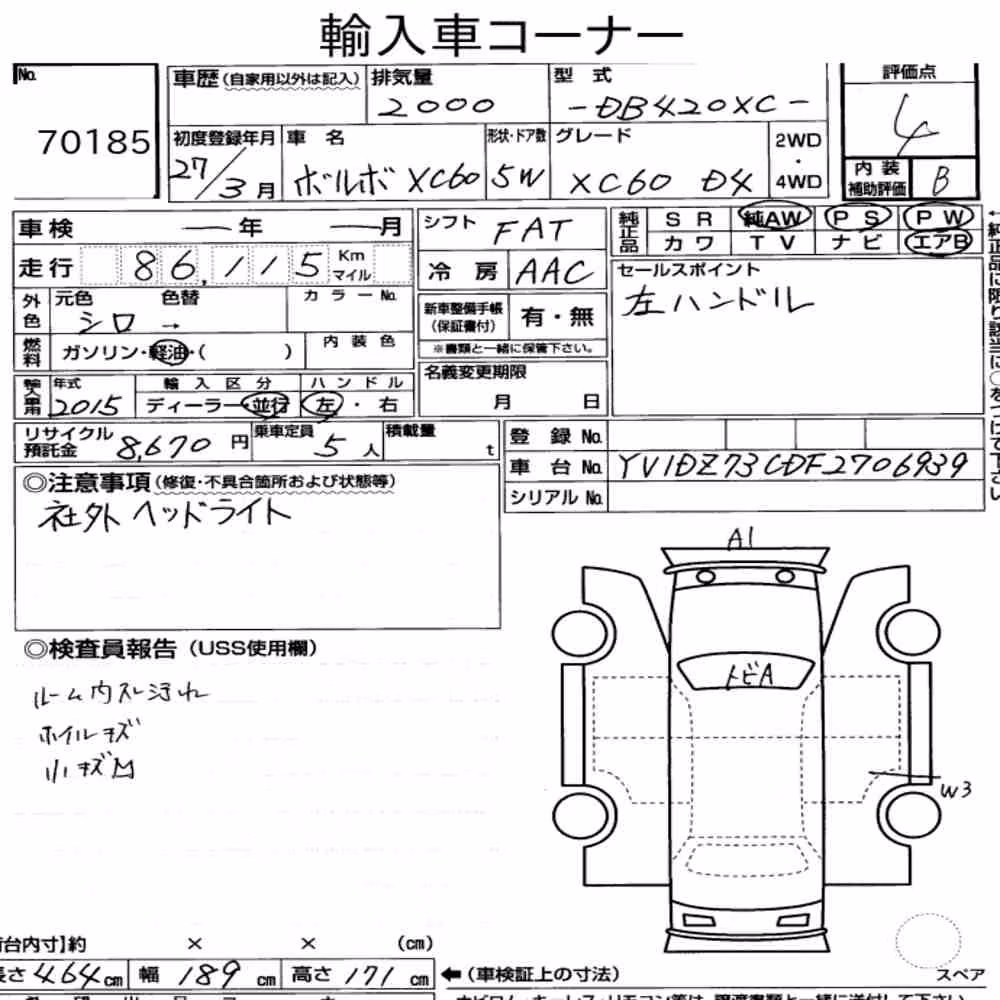 輸入車コーナー
No.
70185
車歴(自家用以外は記入)
排気量
2000
型式
-DB420XC-
評価点
4
初度登録年月
27/3月
車名
ボルボ XC60
形状・ドア数
5W
グレード
XC60 D4
2WD
・
4WD
内装
補助評価
B
車検
―年
―月
走行
86,115
Km
マイル
シフト
FAT
冷房
AAC
純正品
SR
純AW
PS
PW
カワ
TV
ナビ
エアB
セールスポイント
左ハンドル
外色
元色
色替
カラーNo.
シロ →
燃料
ガソリン・軽油・( )
内装色
新車整備手帳
(保証書付)
有・無
※書類と一緒に保管下さい。
名義変更期限
月 日
年式
2015
輸入区分
ディーラー・並行
ハンドル
左・右
リサイクル
預託金
8,670円
乗車定員
5人
積載量
t
登録No.
車台No.
YV1DZ73CDF2706939
シリアルNo.
◎注意事項(修復・不具合箇所および状態等)
社外ヘッドライト
◎検査員報告(USS使用欄)
ルーム内スレ汚れ
ホイルキズ
小キズ凹
A1
トビA
W3
台内寸】約 × × (cm)
長さ464cm
幅189cm
高さ171cm
←(車検証上の寸法)
スペア